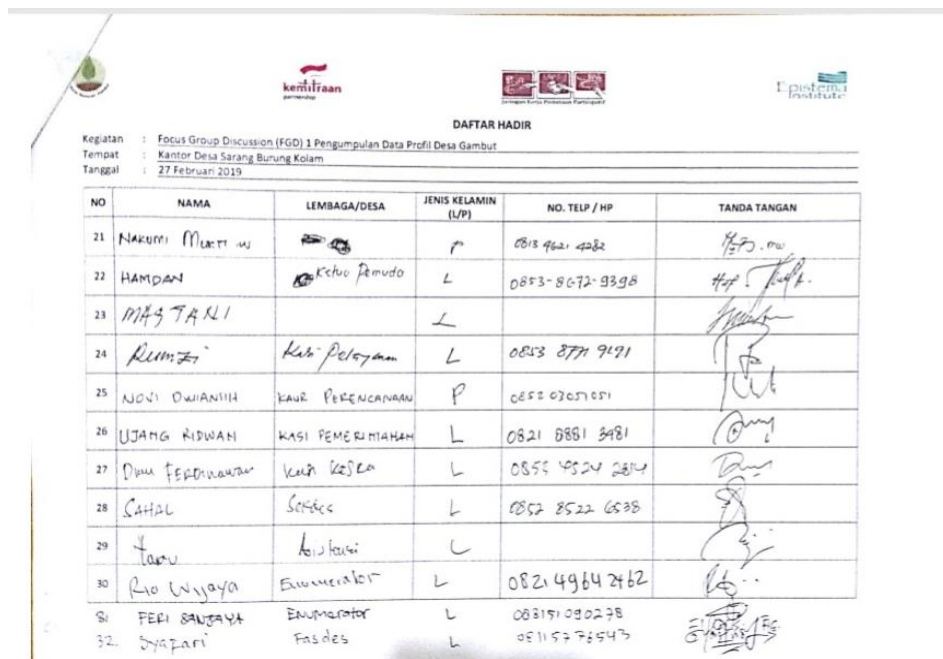 kemitraan
partnership
Jaringan Kerja Pemetaan Partisipatif
Epistema
Institute
DAFTAR HADIR
Kegiatan : Focus Group Discussion (FGD) 1 Pengumpulan Data Profil Desa Gambut
Tempat : Kantor Desa Sarang Burung Kolam
Tanggal : 27 Februari 2019
NO NAMA LEMBAGA/DESA JENIS KELAMIN (L/P) NO. TELP / HP TANDA TANGAN
21 NAKUMI P
22 HAMDAN Ketua Pemuda L 0853-8672-9398
23 MASTANI L
24 Rumzi Kasi Pelayanan L 0853
25 NOVI DWIANSIH KAUR PERENCANAAN P
26 UJANG RIDWAN KASI PEMERINTAHAN L 0821 8881 3981
27 L
28 SAHAL Sekdes L 0852 8522 6538
29 L
30 Rio Wijaya Enumerator L 0821 4964 2462
31 FERI SANJAYA Enumerator L 083151090278
32. Syapari Fasdes L 081157 76543